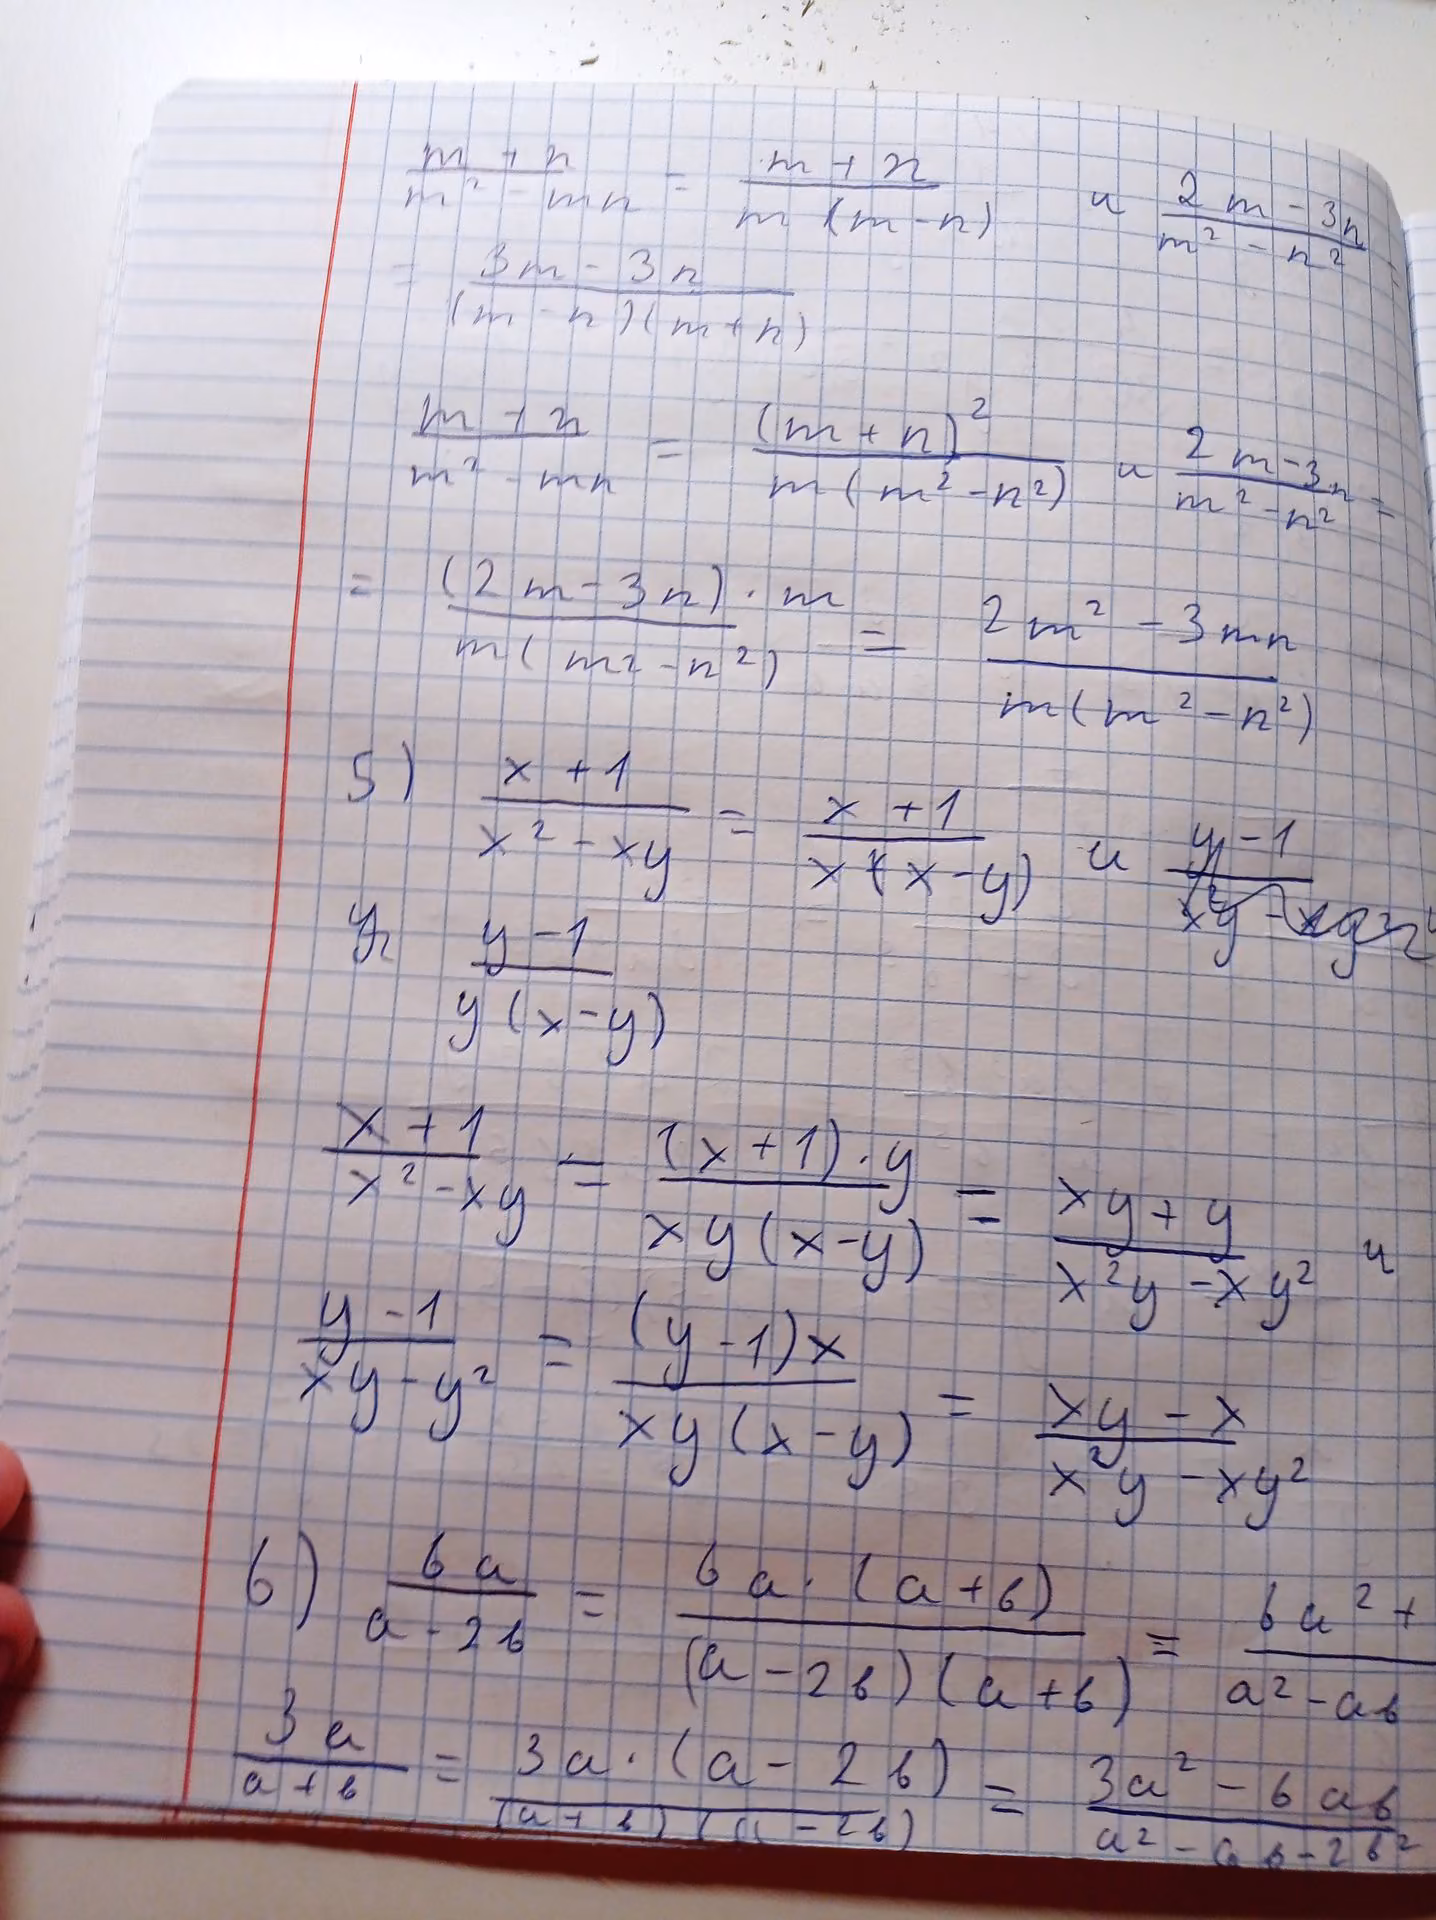 (m + n)/(m² - mn) = (m + n)/(m (m - n)) и (2m - 3n)/(m² - n²) =
= (3m - 3n)/((m - n)(m + n))
(m + n)/(m² - mn) = (m + n)²/(m(m² - n²)) и (2m - 3n)/(m² - n²) =
= ((2m - 3n) · m)/(m(m2 - n²)) = (2m² - 3mn)/(m(m² - n²))
5) (x + 1)/(x² - xy) = (x + 1)/(x(x - y)) и (y - 1)/
(y - 1)/(y(x - y))
(x + 1)/(x² - xy) = ((x + 1) · y)/(xy(x - y)) = (xy + y)/(x²y - xy²) и
(y - 1)/(xy - y²) = ((y - 1)x)/(xy(x - y)) = (xy - x)/(x²y - xy²)
6) 6a/(a - 2b) = (6a · (a + b))/((a - 2b)(a + b)) = (6a² +)/(a² - ab)
3a/(a + b) = (3a · (a - 2b))/((a + b)(a - 2b)) = (3a² - 6ab)/(a² - ab - 2b²)